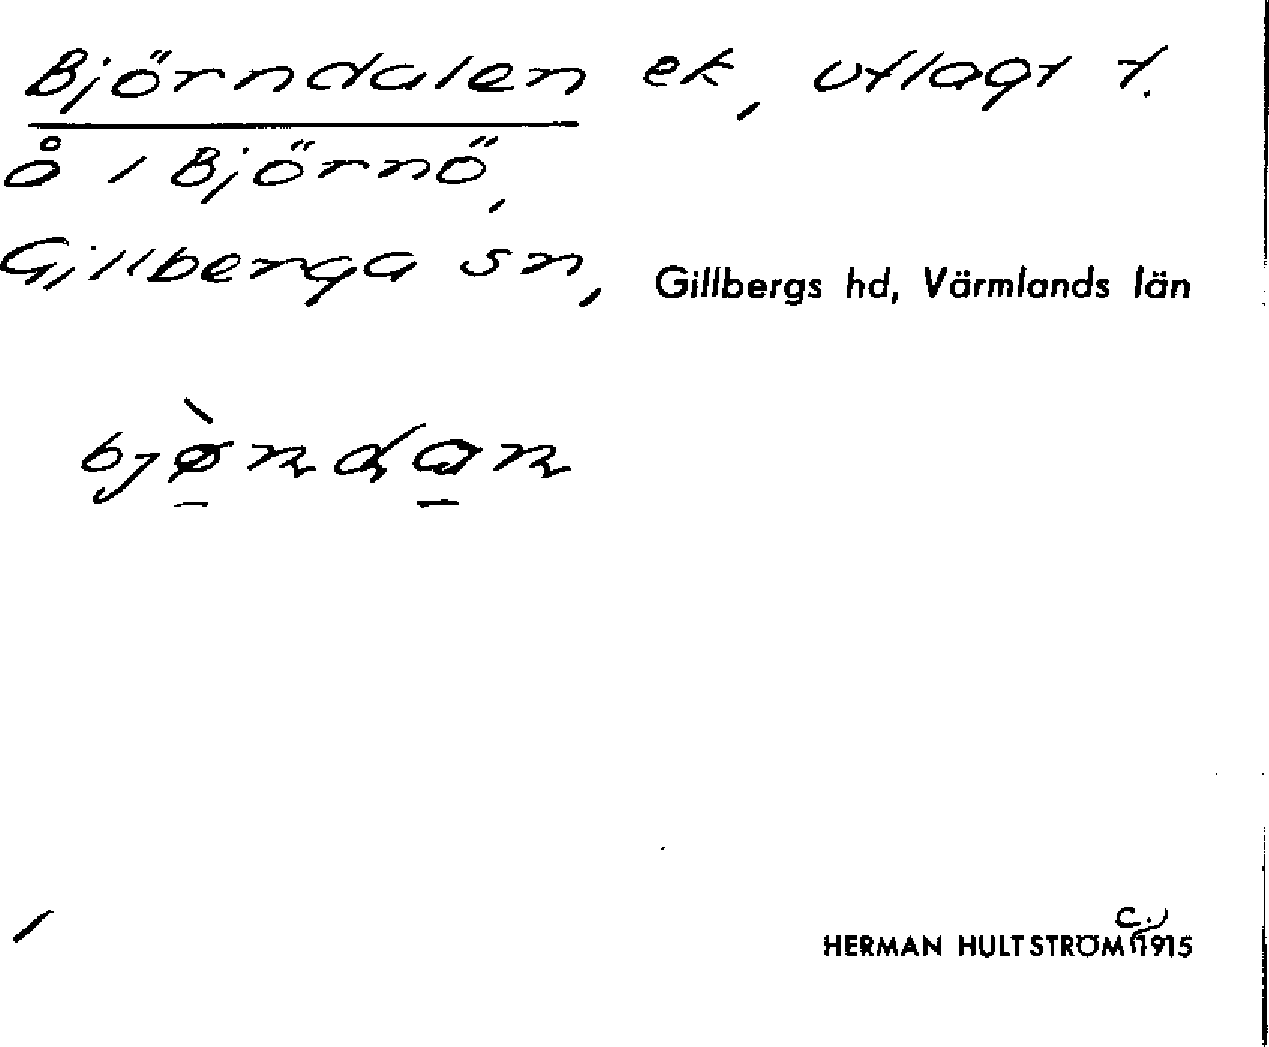 Björndalen ek, utlagt t.
å i Björnö,
Gillberga sn, Gillbergs hd, Värmlands län
bjø̀ndan
HERMAN HULTSTRÖM (c.) 1915